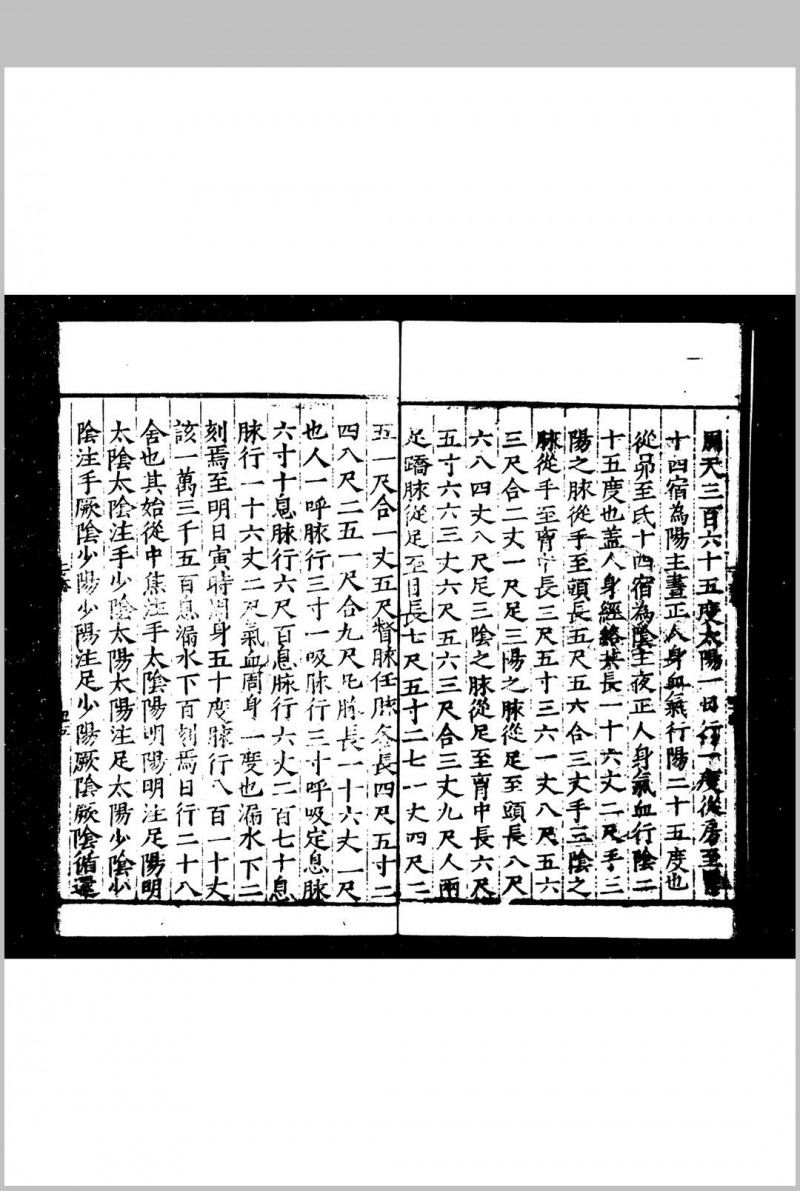 周天三百六十五度太陽一日行一度從房至畢
十四宿為陽主晝正人身血氣行陽二十五度也
從昴至氐十四宿為陰主夜正人身氣血行陰二
十五度也蓋人身經絡共長一十六丈二尺手三
陽之脉從手至頭長五尺五六合三丈手三陰之
脉從手至胷中長三尺五寸三六一丈八尺五六
三尺合二丈一尺足三陽之脉從足至頭長八尺
六八四丈八尺足三陰之脉從足至胷中長六尺
五寸六六三丈六尺五六三尺合三丈九尺人兩
足蹻脉從足至目長七尺五寸二七一丈四尺二
五一尺合一丈五尺督脉任脉各長四尺五寸二
四八尺二五一尺合九尺凡脉長一十六丈一尺
也人一呼脉行三寸一吸脉行三寸呼吸定息脉
六寸十息脉行六尺百息脉行六丈二百七十息
脉行一十六丈二尺氣血周身一度也漏水下二
刻焉至明日寅時周身五十度脉行八百一十丈
該一萬三千五百息漏水下百刻焉日行二十八
舍也其始從中焦注手太陰陽明陽明注足陽明
太陰太陰注手少陰太陽太陽注足太陽少陰少
陰注手厥陰少陽少陽注足少陽厥陰厥陰循還